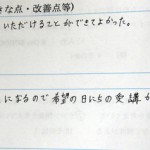 きな点・改善点等)
いただけることができてよかった。
になるので希望の日にちの受講が